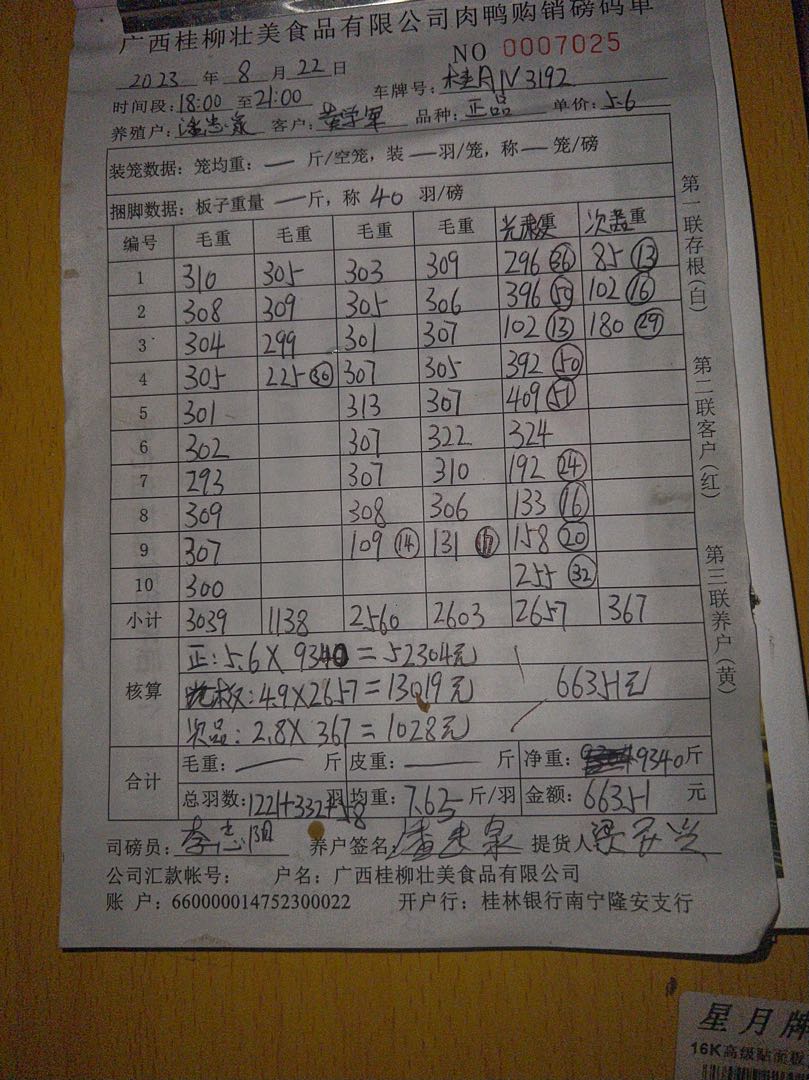 广西桂柳壮美食品有限公司肉鸭购销磅码单
NO 0007025
2023 年 8 月 22 日
车牌号: 桂AN3192
时间段: 18:00 至 21:00
养殖户: 客户: 黄学军 品种: 正品 单价: 5.6
装笼数据: 笼均重: — 斤/空笼, 装 — 羽/笼, 称 — 笼/磅
捆脚数据: 板子重量 — 斤, 称 40 羽/磅
编号 毛重 毛重 毛重 毛重 次品重
1 310 305 303 309 296 36 85 13
2 308 309 305 306 396 50 102 16
3 304 299 301 307 102 13 180 29
4 305 225 30 307 305 392 50
5 301 313 307 409 51
6 302 307 322 324
7 293 307 310 192 24
8 309 308 306 133 16
9 307 109 14 131 17 158 20
10 300 255 32
小计 3039 1138 2560 2603 2657 367
核算
正: 5.6 × 9340 = 52304元
: 4.9 × 2657 = 13019元 66351元
次品: 2.8 × 367 = 1028元
合计
毛重: — 斤 皮重: — 斤 净重: 9340 斤
总羽数: 1221+332+58 羽 均重: 7.65 斤/羽 金额: 66351 元
司磅员: 李志阳 养户签名: 提货人
公司汇款帐号: 户名: 广西桂柳壮美食品有限公司
账 户: 660000014752300022 开户行: 桂林银行南宁隆安支行
第一联存根(白)
第二联客户(红)
第三联养户(黄)
星月牌
16K高级贴面板